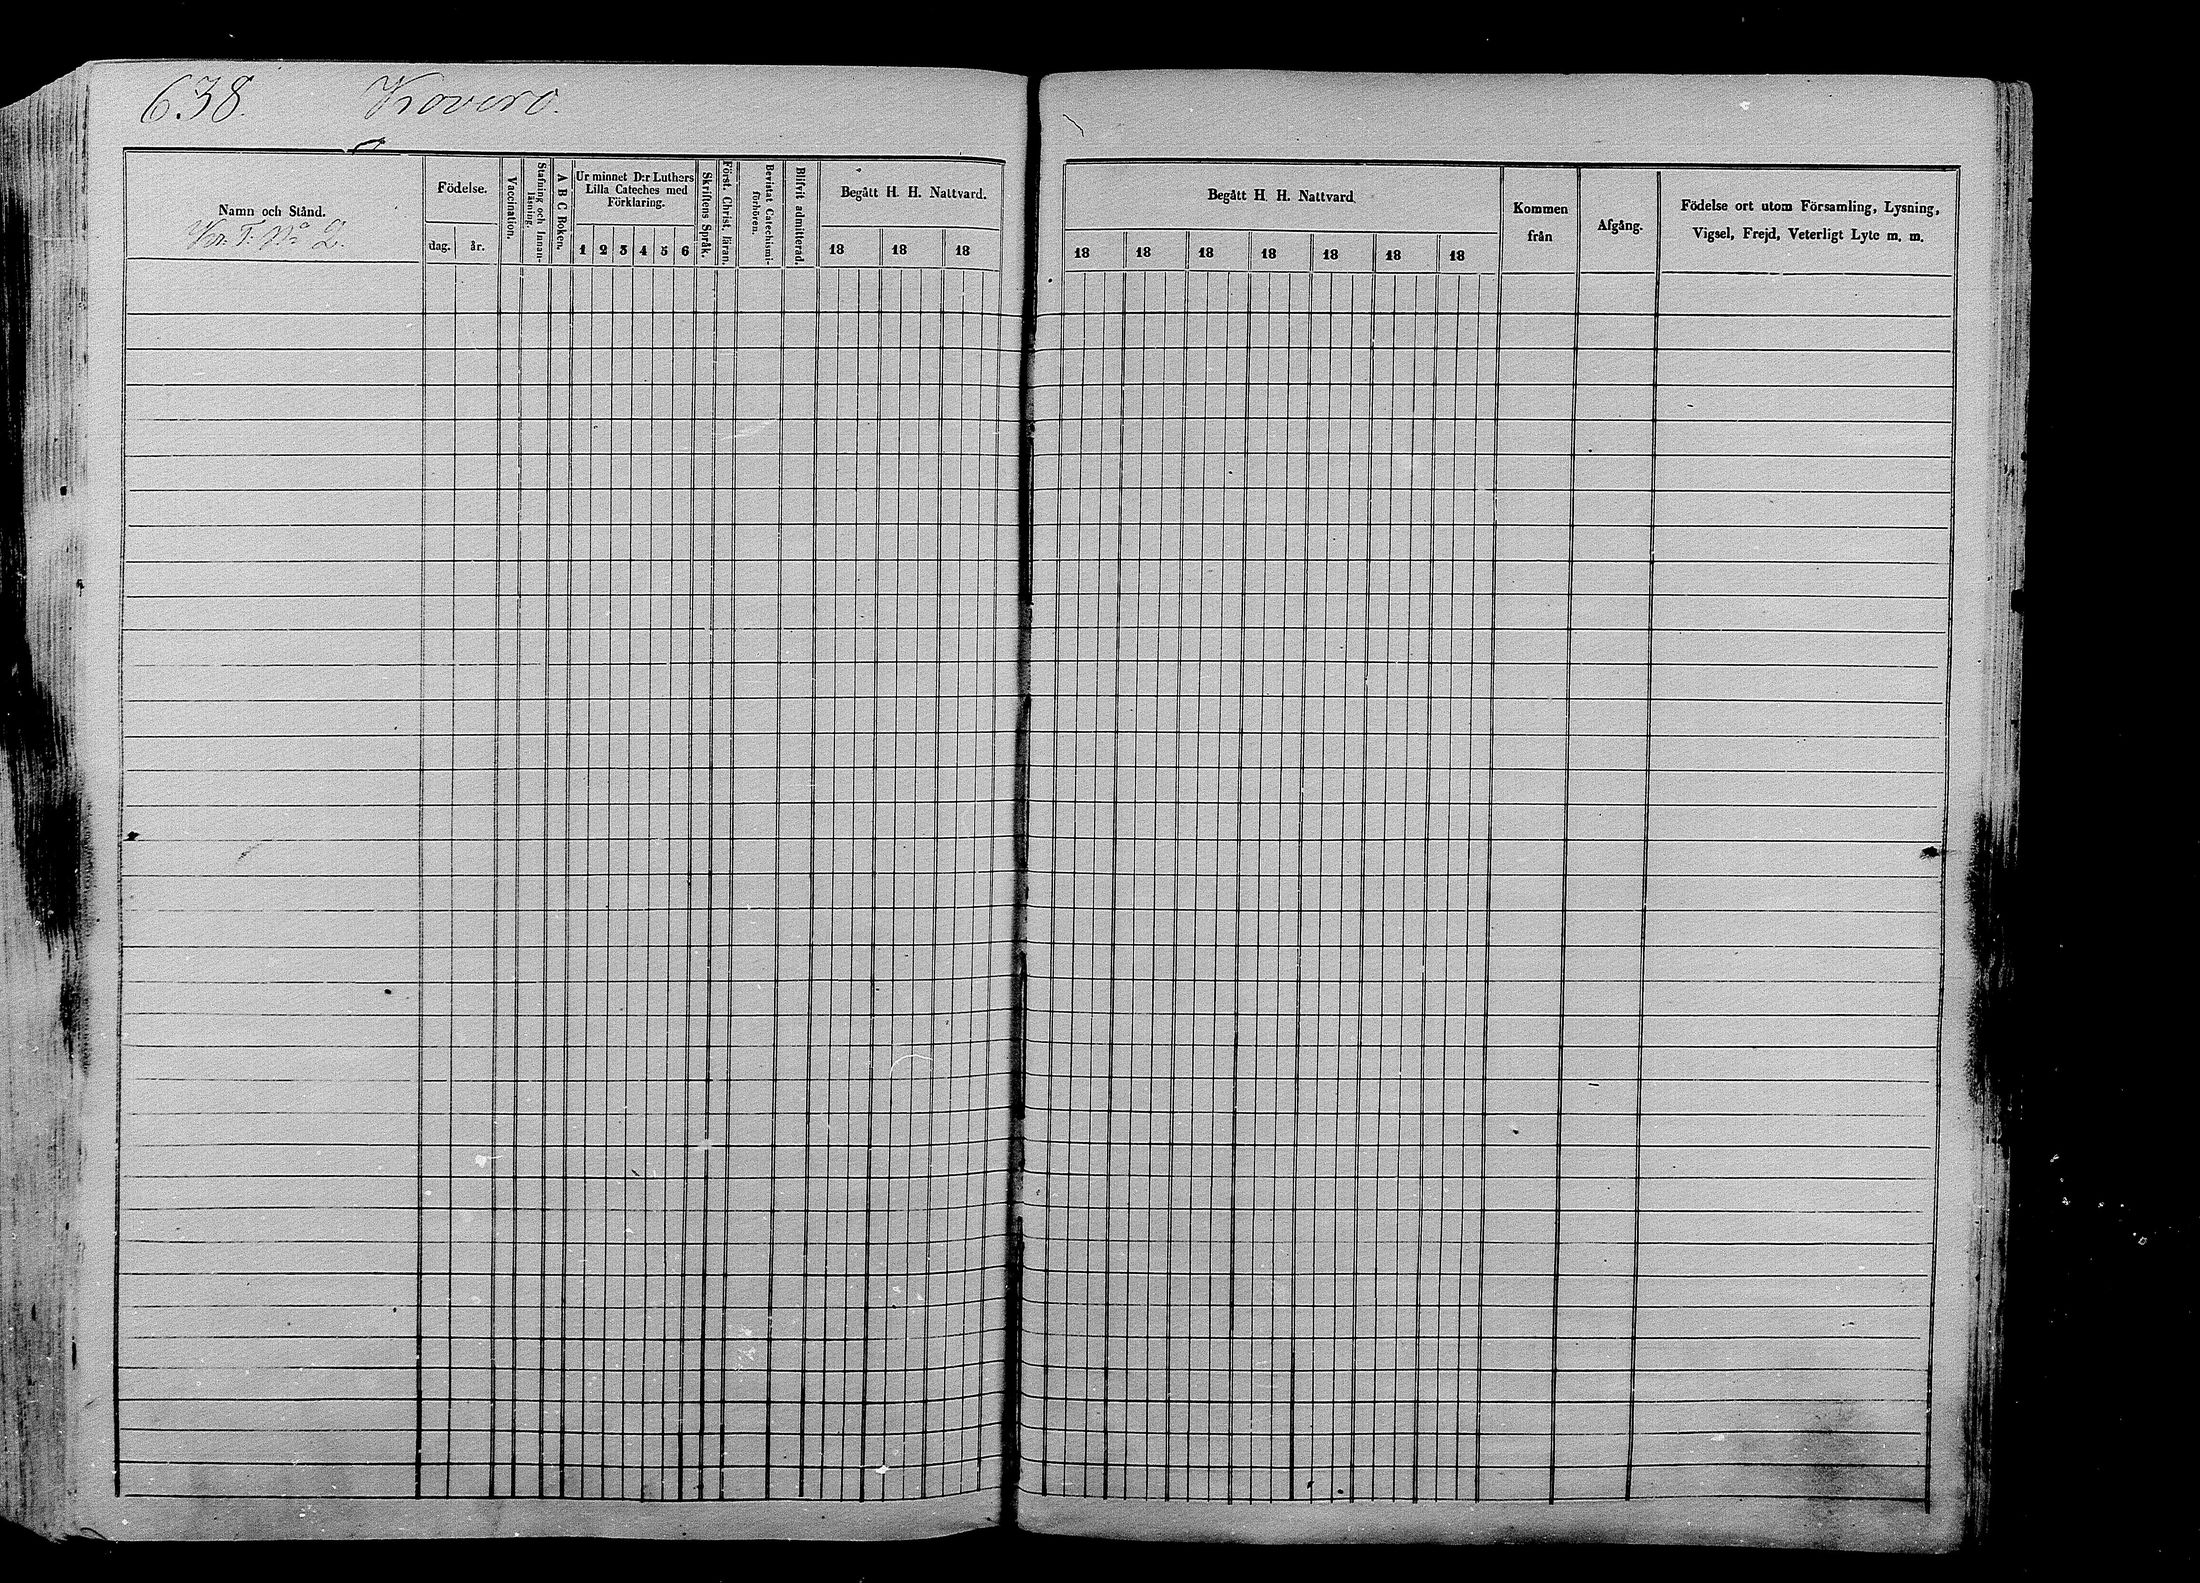 638. Kovero.
Namn och Stånd.
Kr. T. No 2.
Födelse.
dag. år.
Vaccination.
Stafning och Innan-
läsning.
A B C Boken.
Ur minnet D:r Luthers
Lilla Cateches med
Förklaring.
1 2 3 4 5 6
Skriftens Språk.
Först. Christ. läran.
Bevistat Catechismi-
förhören.
Blifvit admitterad.
Begått H. H. Nattvard.
18 18 18
Begått H. H. Nattvard.
18 18 18 18 18 18 18
Kommen
från
Afgång.
Födelse ort utom Församling, Lysning,
Vigsel, Frejd, Veterligt Lyte m. m.